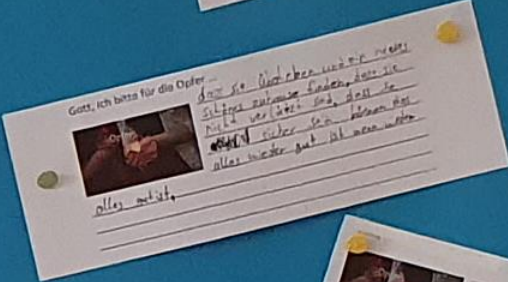 Gott, ich bitte für die Opfer ...
dass sie Überleben und ein neues
schönes zuhause finden, dass sie
nicht verletzt sind, dass sie
sicher sein können das
alles wieder gut ist wenn
alles gut ist.